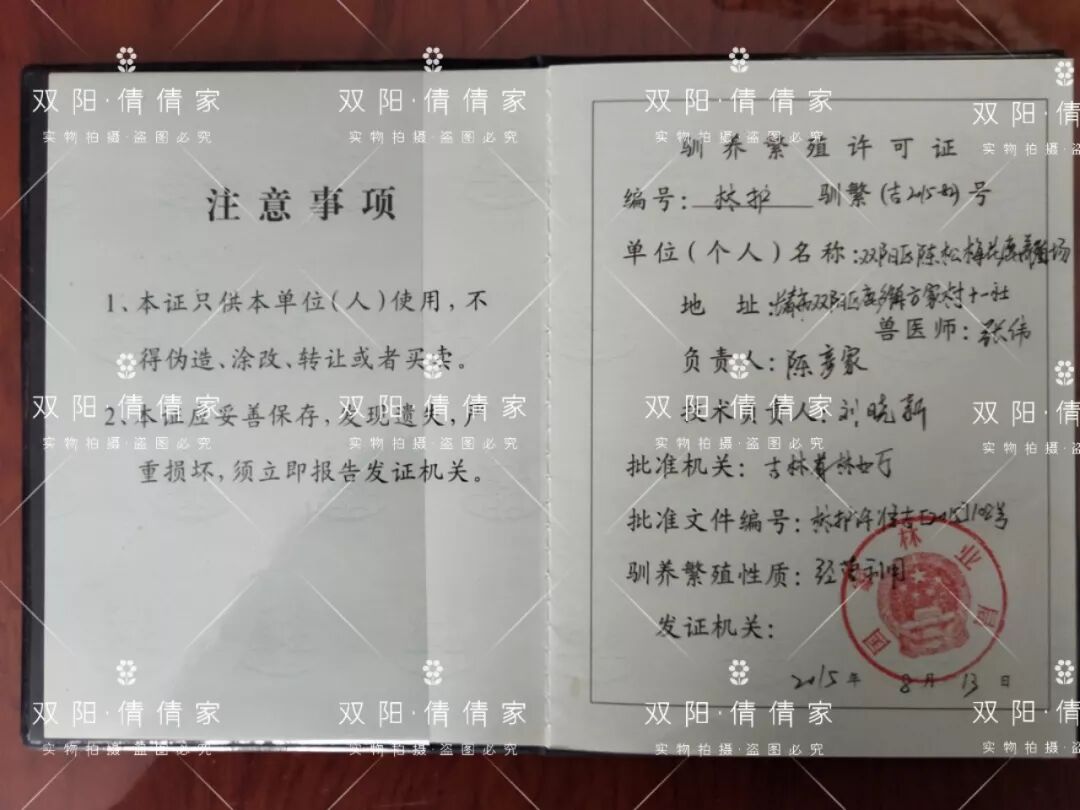 注意事项
1、本证只供本单位(人)使用,不
得伪造、涂改、转让或者买卖。
2、本证应妥善保存,发现遗失,严
重损坏,须立即报告发证机关。
驯养繁殖许可证
编号: 林护 驯繁(吉2015-  )号
单位(个人)名称:双阳区陈松梅花鹿养殖场
地 址: 双阳区 方家村十一社
兽医师:张伟
负责人:陈彦家
技术负责人:刘晓新
批准机关:吉林省林业厅
批准文件编号:林护许准吉[2015]1102号
驯养繁殖性质:经营利用
发证机关:
国家林业局
2015年 8月 13日
双阳·倩倩家
实物拍摄·盗图必究